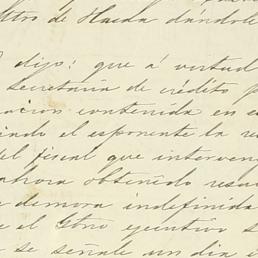 ltro de Hacda dandole
dijo: que á virtud
Secretaria de crédito p
acion contenida en s
iando el esponente la re
del fiscal que interven
ahora obtenido resu
demora indefinida
e el Gbno ejecutivo s
se señale un dia